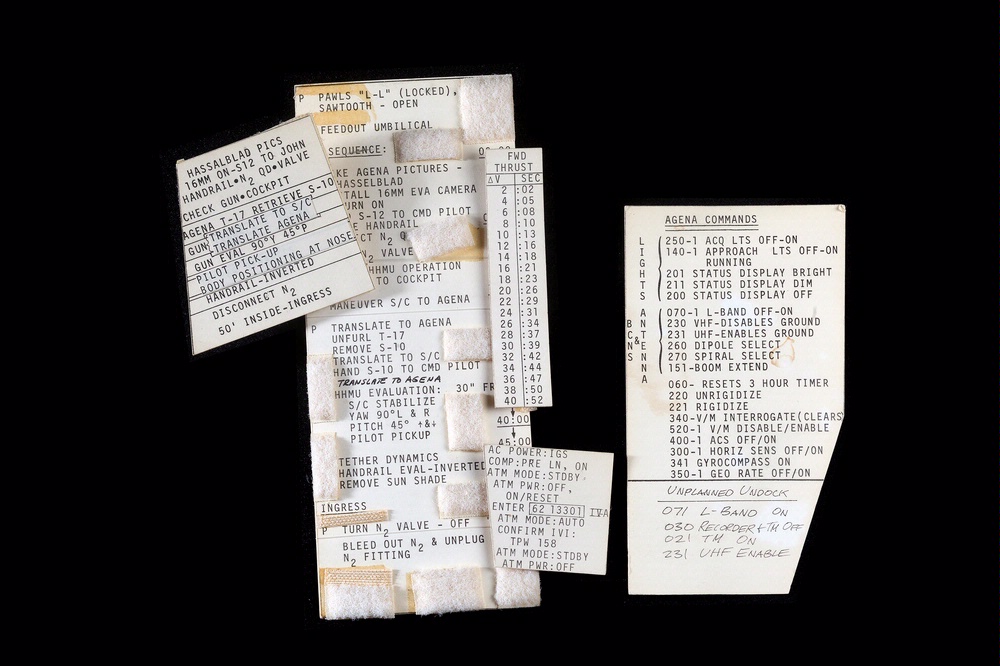 HASSELBLAD PICS
16MM ON•S12 TO JOHN
HANDRAIL•N2 QD•VALVE
CHECK GUN•COCKPIT
AGENA T-17 RETRIEVE S-10
GUN TRANSLATE TO S/C
TRANSLATE AGENA
GUN EVAL 90°Y 45°P
PILOT PICK-UP
BODY POSITIONING AT NOSE
HANDRAIL-INVERTED
DISCONNECT N2
50' INSIDE-INGRESS
P PAWLS "L-L" (LOCKED),
SAWTOOTH - OPEN
FEEDOUT UMBILICAL
SEQUENCE:
KE AGENA PICTURES -
HASSELBLAD
TALL 16MM EVA CAMERA
URN ON
S-12 TO CMD PILOT
E HANDRAIL
CT N2 Q
N2 VALVE
HHMU OPERATION
TO COCKPIT
MANEUVER S/C TO AGENA
P TRANSLATE TO AGENA
UNFURL T-17
REMOVE S-10
TRANSLATE TO S/C
HAND S-10 TO CMD PILOT
TRANSLATE TO AGENA
HHMU EVALUATION: 30" FR
S/C STABILIZE
YAW 90°L & R
PITCH 45° ↑&↓
PILOT PICKUP
40:00
45:00
TETHER DYNAMICS
HANDRAIL EVAL-INVERTED
REMOVE SUN SHADE
INGRESS
P TURN N2 VALVE - OFF
BLEED OUT N2 & UNPLUG
N2 FITTING
FWD
THRUST
ΔV SEC
2 :02
4 :05
6 :08
8 :10
10 :13
12 :16
14 :18
16 :21
18 :23
20 :26
22 :29
24 :31
26 :34
28 :37
30 :39
32 :42
34 :44
36 :47
38 :50
40 :52
AC POWER:IGS
COMP:PRE LN, ON
ATM MODE:STDBY
ATM PWR:OFF,
ON/RESET
ENTER 62 13301 IVA
ATM MODE:AUTO
CONFIRM IVI:
TPW 158
ATM MODE:STDBY
ATM PWR:OFF
AGENA COMMANDS
LIGHTS
250-1 ACQ LTS OFF-ON
140-1 APPROACH LTS OFF-ON
RUNNING
201 STATUS DISPLAY BRIGHT
211 STATUS DISPLAY DIM
200 STATUS DISPLAY OFF
BCNS & ANTENNA
070-1 L-BAND OFF-ON
230 VHF-DISABLES GROUND
231 UHF-ENABLES GROUND
260 DIPOLE SELECT
270 SPIRAL SELECT
151-BOOM EXTEND
060- RESETS 3 HOUR TIMER
220 UNRIGIDIZE
221 RIGIDIZE
340-V/M INTERROGATE(CLEARS
520-1 V/M DISABLE/ENABLE
400-1 ACS OFF/ON
300-1 HORIZ SENS OFF/ON
341 GYROCOMPASS ON
350-1 GEO RATE OFF/ON
UNPLANNED UNDOCK
071 L-BAND ON
030 RECORDER & TM OFF
021 TM ON
231 UHF ENABLE